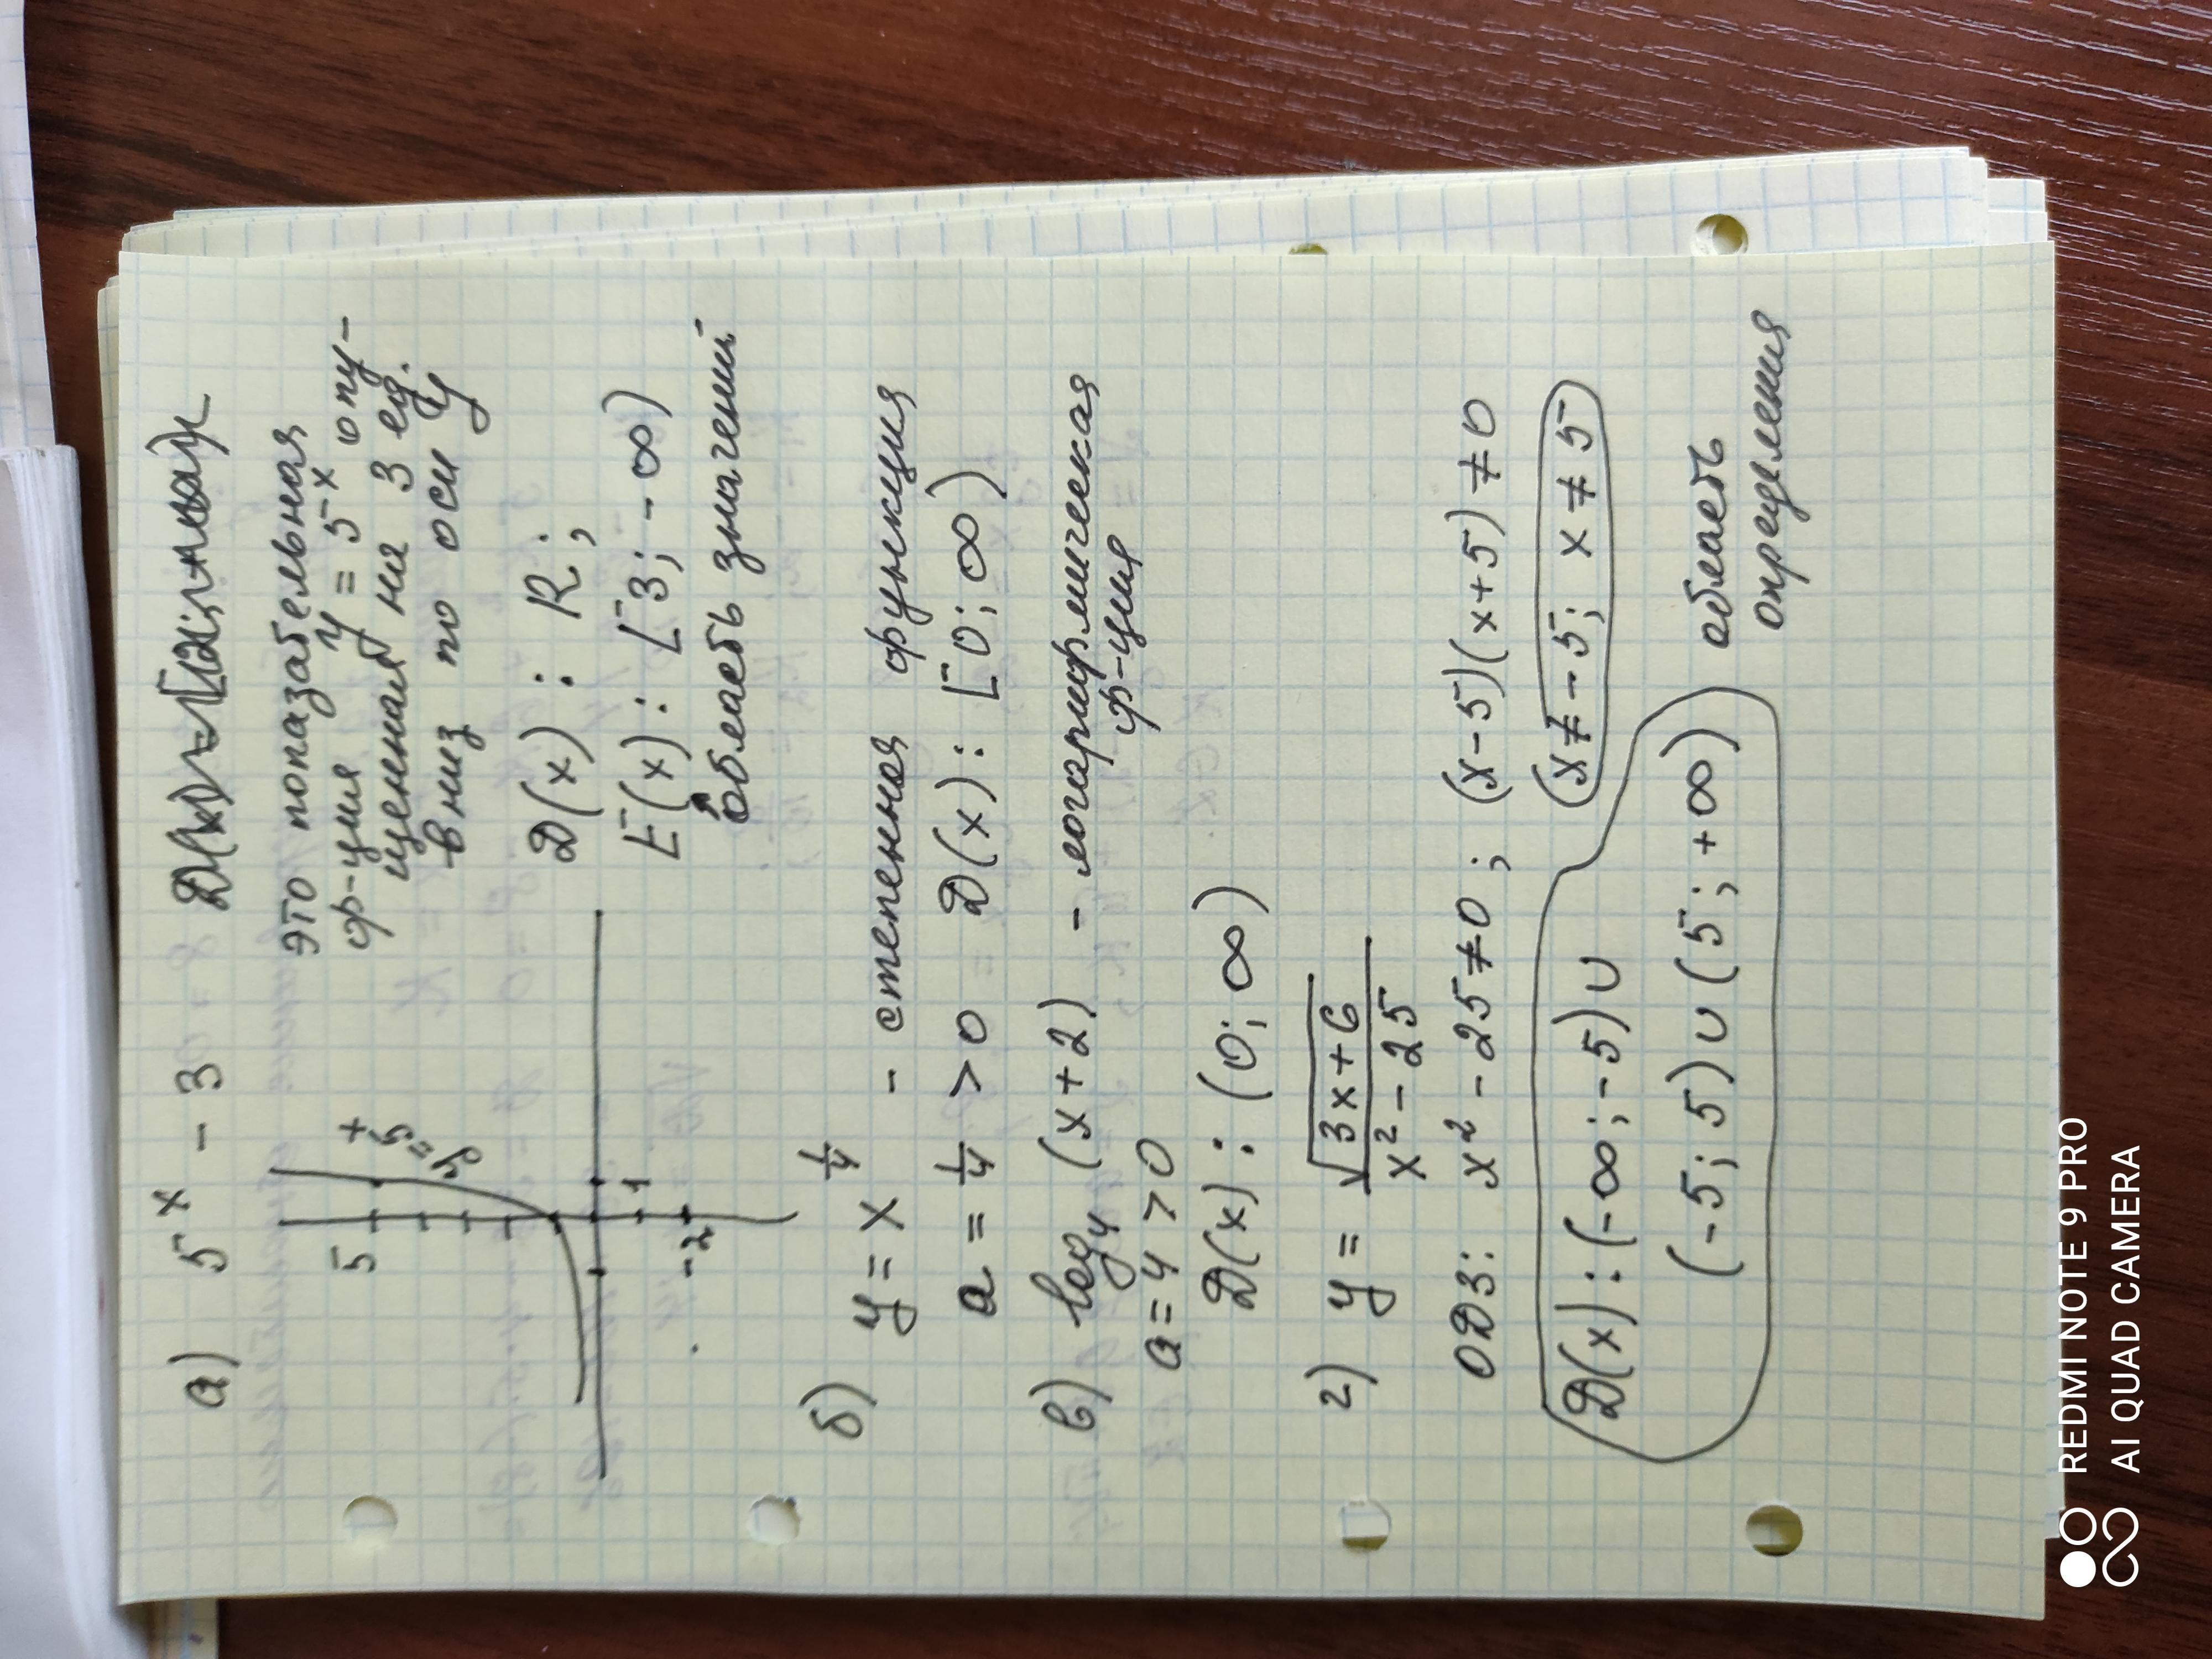 а) 5ˣ - 3
это показательная
ф-ция y = 5ˣ опу-
щенная на 3 ед.
вниз по оси y
5
y = 5ˣ
1
-2
D(x) : R;
E(x) : [3; -∞)
область значений
б) y = x^¼ - степенная функция
a = ¼ > 0 D(x) : [0; ∞)
в) log₄ (x+2) - логарифмическая
ф-ция
a = 4 > 0
D(x) : (0; ∞)
г) y = √(3x+6) / (x² - 25)
ОДЗ: x² - 25 ≠ 0 ; (x-5)(x+5) ≠ 0
(x ≠ -5; x ≠ 5)
D(x) : (-∞; -5) ∪
(-5; 5) ∪ (5; +∞)
область
определения
REDMI NOTE 9 PRO
AI QUAD CAMERA